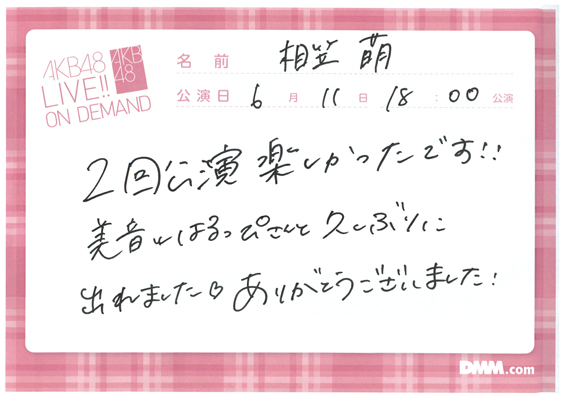 AKB48
LIVE!!
ON DEMAND
AKB
48
名前 相笠 萌
公演日 6月 11日 18:00 公演
2回公演 楽しかったです!!
美音とはるっぴさんと 久しぶりに
出れました♡ ありがとうございました!
DMM.com